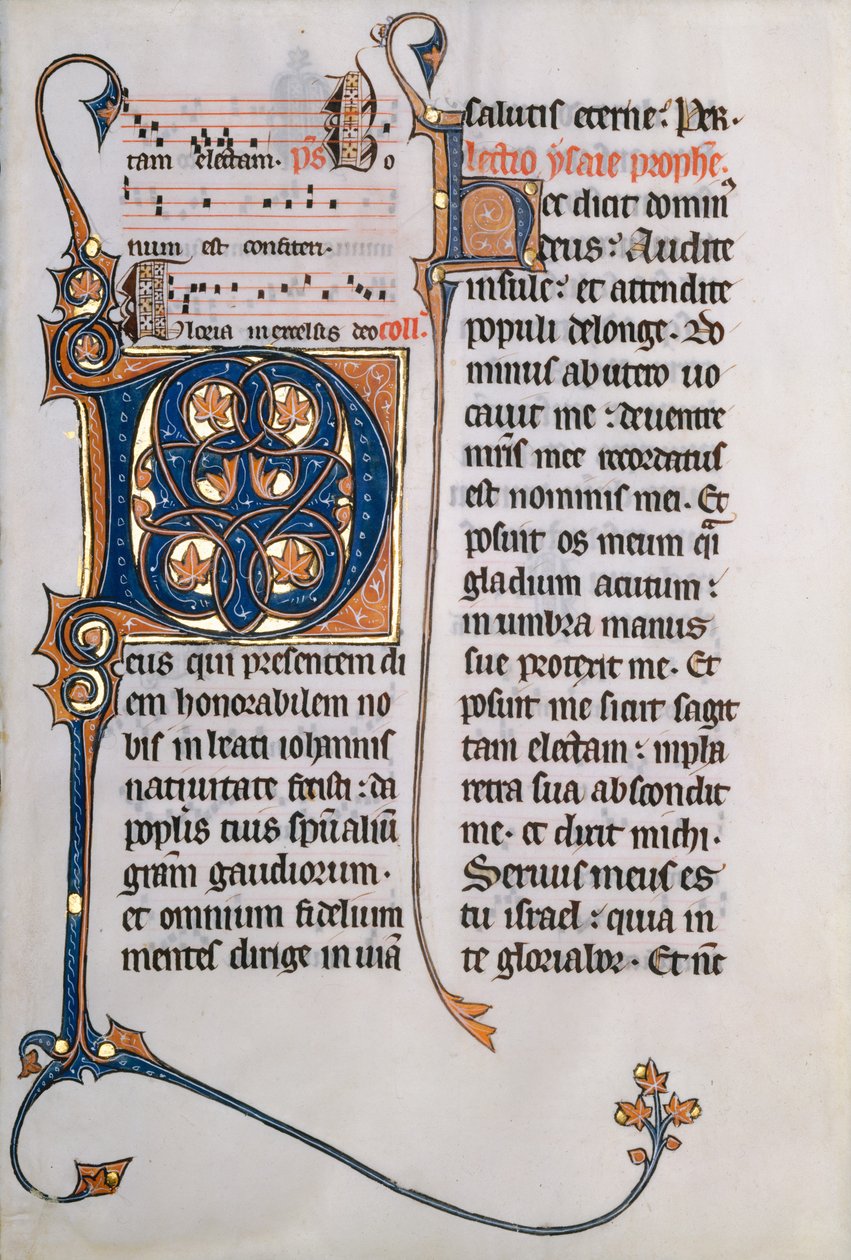 tam electam. p̄s Bo
num est confiteri.
Gloria in excelsis deo coll.
Deus qui presentem di
em honorabilem no
bis in beati iohannis
nativitate fecisti: da
poplis tuis sp̄ualiū
grām gaudiorum.
et omnium fidelium
mentes dirige in uiā
salutis eterne: Per.
lectio ysaie prophe.
Hec dicit dominꝰ
deus: Audite
insule: et attendite
populi delonge. Do
minus ab utero uo
cauit me: de uentre
mr̄is mee recordatus
est nominis mei. Et
posuit os meum qͣi
gladium acutum:
in umbra manus
sue protexit me. Et
posuit me sicut sagit
tam electam: in pha
retra sua abscondit
me. et dixit michi.
Seruus meus es
tu israel: quia in
te gloriabor. Et nūc